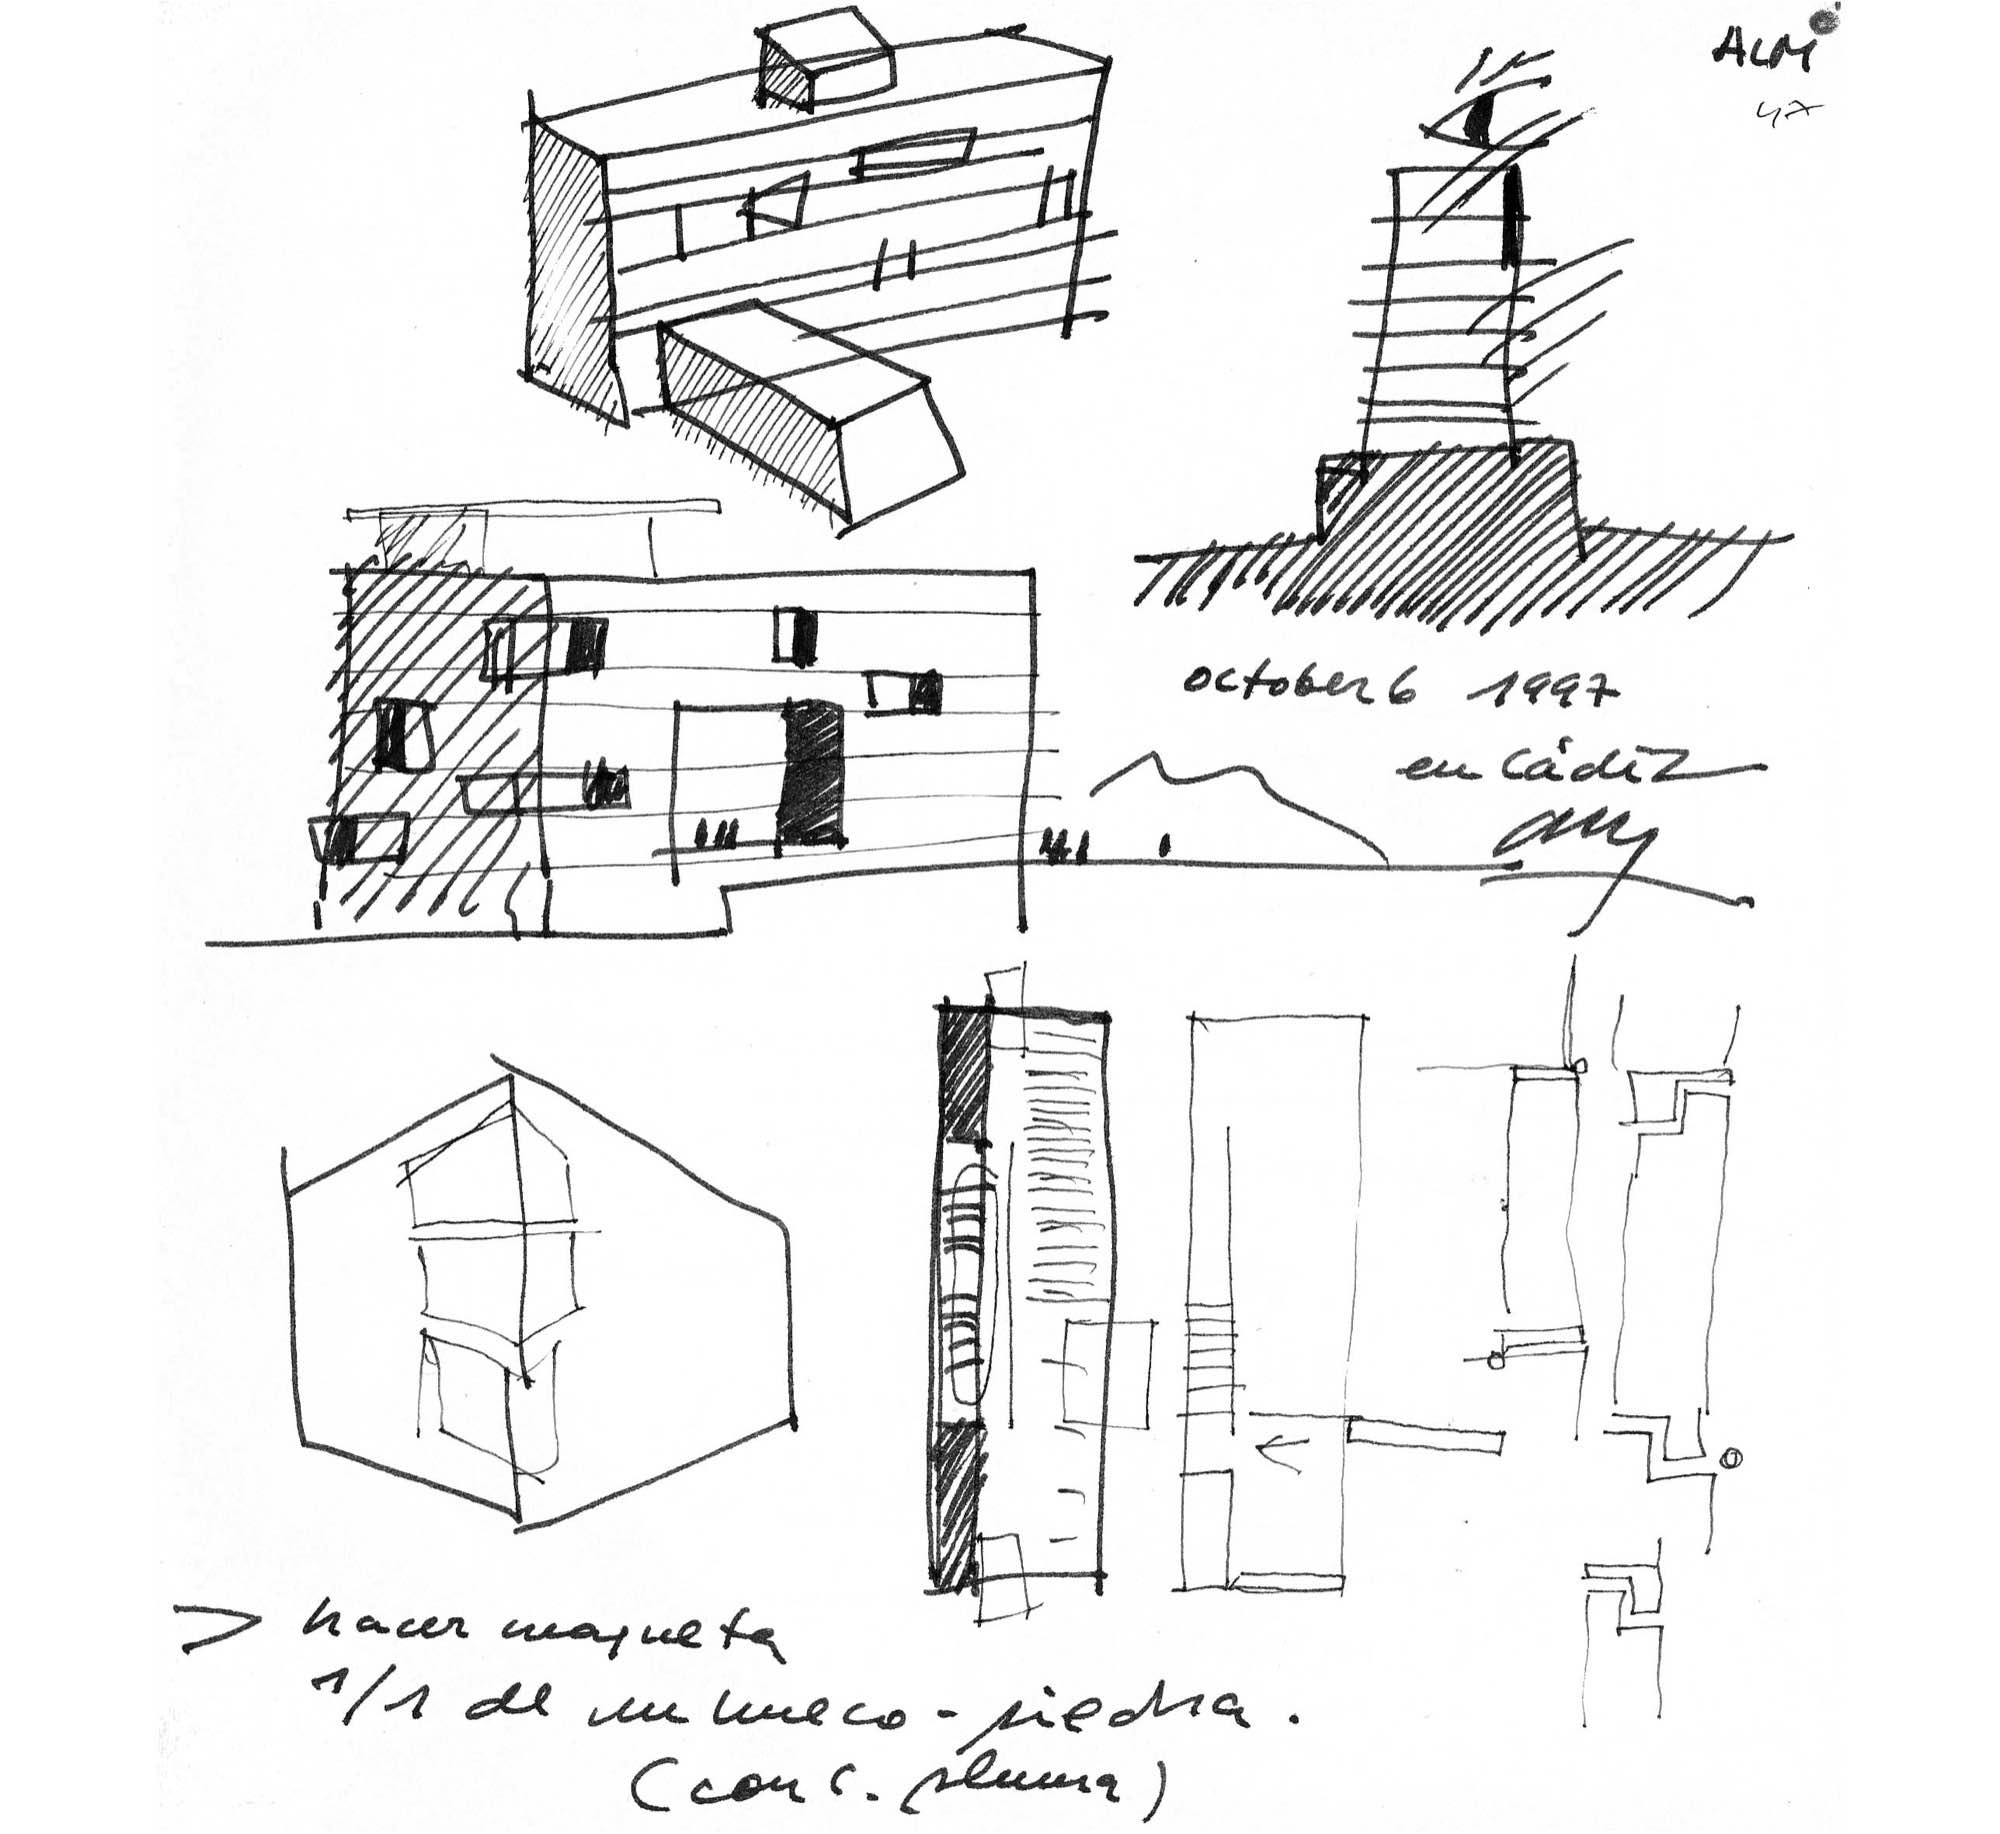 ALM
47
october 6 1997
en Cádiz
> hacer maqueta
1/1 de un hueco - piedra.
(con c. pluma)